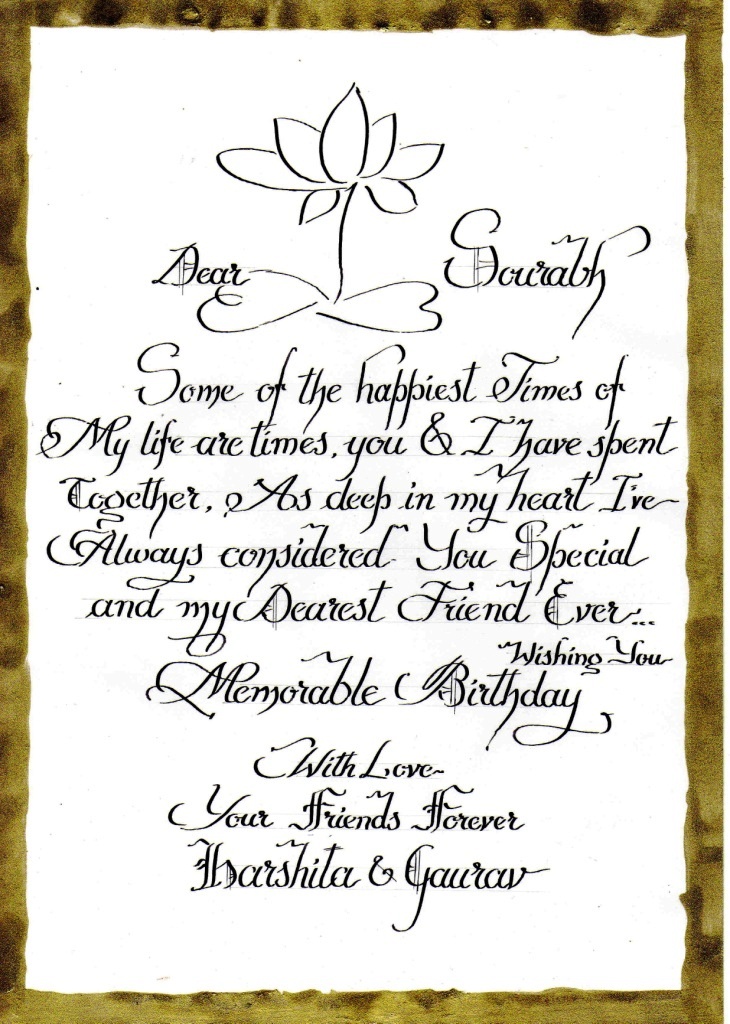 Dear Sourabh
Some of the happiest Times of
My life are times, you & I have spent
Together, As deep in my heart I've
Always considered You Special
and my Dearest Friend Ever...
Wishing You
Memorable Birthday
With Love
Your Friends Forever
Harshita & Gaurav